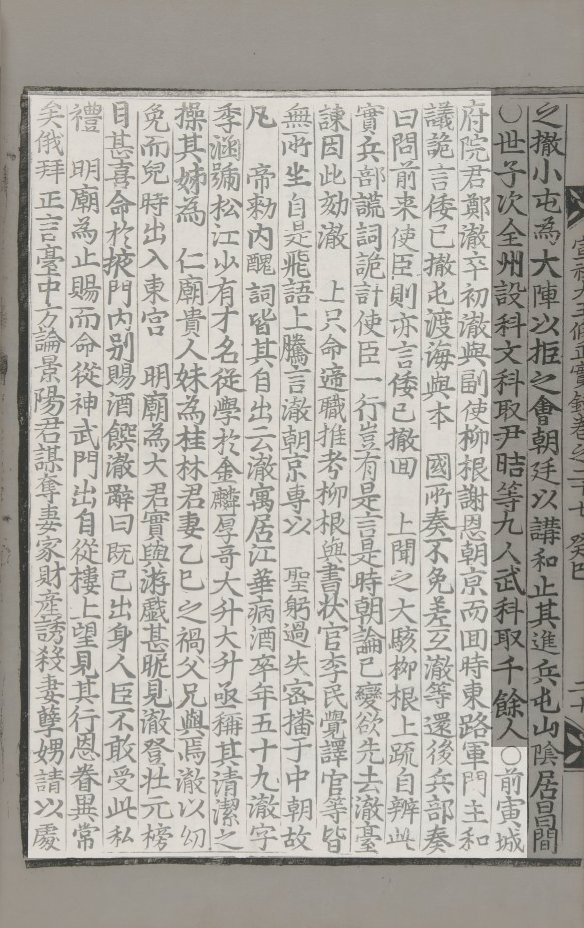 之撤小屯為大陣以拒之會朝廷以講和止其進兵屯山陰居昌間
○世子次全州設科文科取尹晧等九人武科取千餘人○前寅城
府院君鄭澈卒初澈與副使柳根謝恩朝京而回時東路軍門主和
議詭言倭已撤屯渡海與本 國所奏不免差互澈等還後兵部奏
曰問前来使臣則亦言倭已撤回 上聞之大駭柳根上䟽自辨此
實兵部謊詞詭計使臣一行豈有是言是時朝論已變欲先去澈臺
諫因此劾澈 上只命遞職推考柳根與書狀官李民覺譯官等皆
無所坐自是飛語上騰言澈朝京專以 聖躬過失密播于中朝故
凡 帝勑內醜詞皆其自出云澈寓居江華病酒卒年五十九澈字
季涵號松江少有才名從學於金麟厚奇大升大升亟稱其清潔之
操其姊為 仁廟貴人妹為桂林君妻乙巳之禍父兄與焉澈以幼
免而兒時出入東宮 明廟為大君實與游戲甚昵見澈登壯元榜
目甚喜命於掖門內別賜酒饌澈辭曰既已出身人臣不敢受此私
禮 明廟為止賜而命從神武門出自從樓上望見其行恩眷異常
矣俄拜 正言臺中方論景陽君謀奪妻家財產誘殺妻孽娚請以處